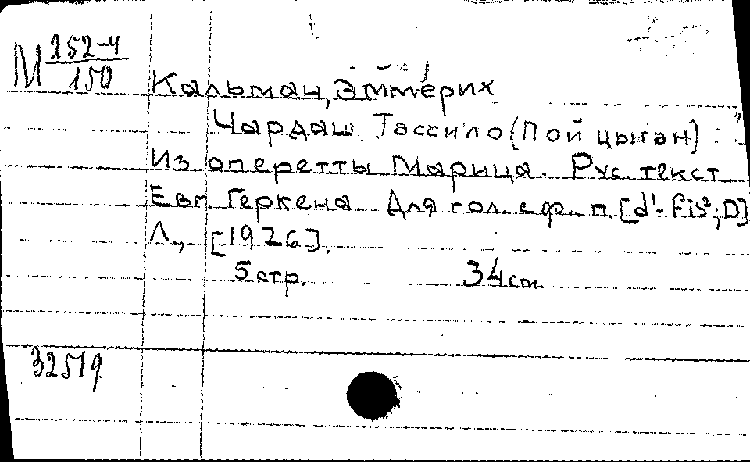 М 252-4/150
Кальман, Эммерих
Чардаш Тассило (Пой цыган) :
Из оперетты Марица. Рус. текст
Евг. Геркена. Для гол. с ф.-п. [d¹-fis²; D]
Л., [1926].
5 стр. 34 см.
32519